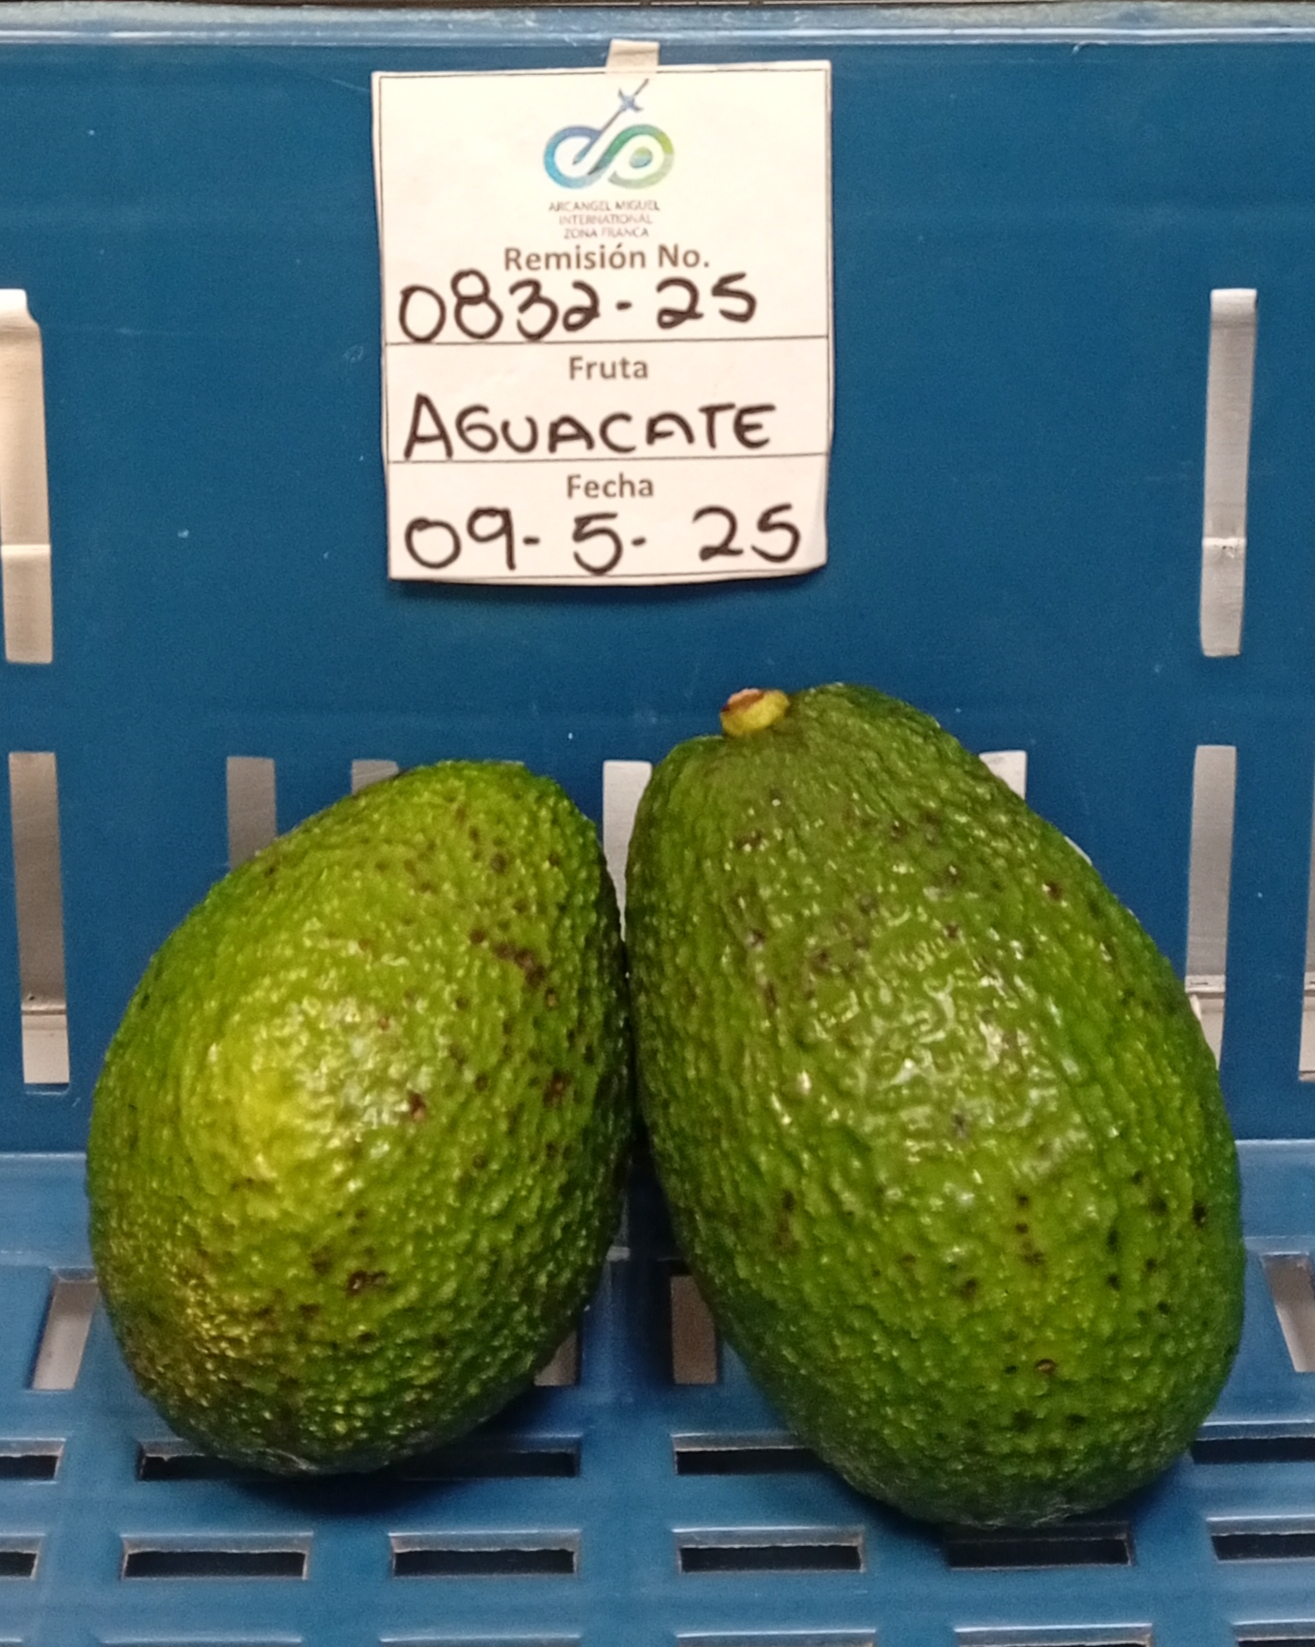 ARCANGEL MIGUEL
INTERNATIONAL
ZONA FRANCA
Remisión No.
0832-25
Fruta
AGUACATE
Fecha
09-5-25